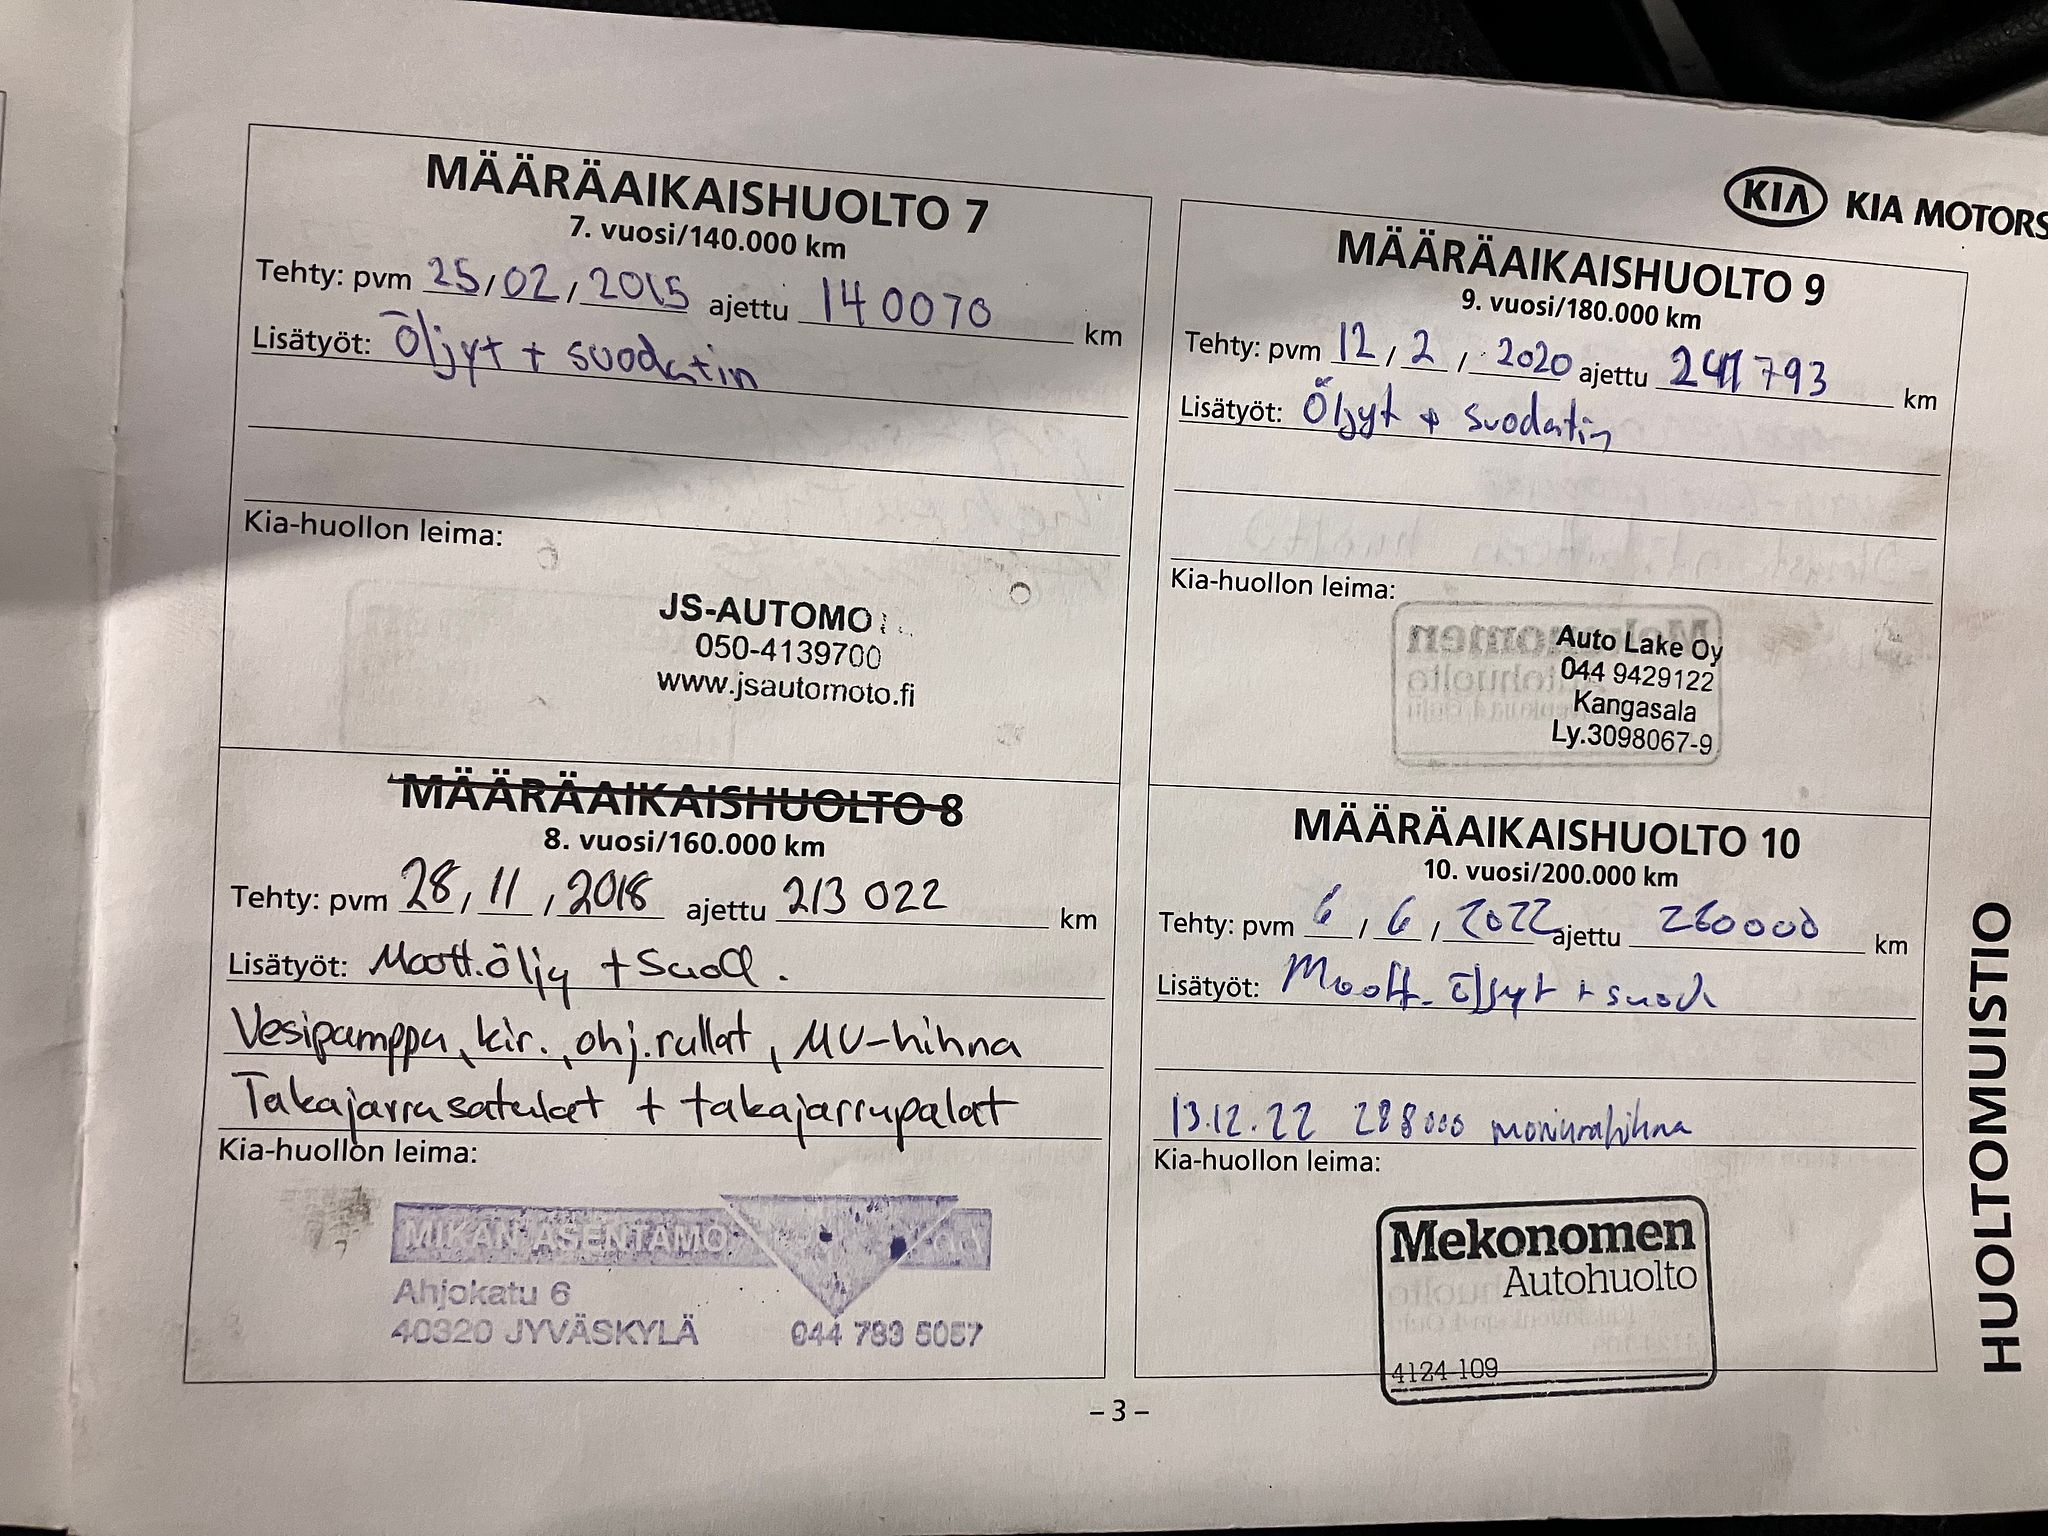 MÄÄRÄAIKAISHUOLTO 7
7. vuosi/140.000 km
Tehty: pvm 25/02/2015 ajettu 140070 km
Lisätyöt: Öljyt + suodatin
Kia-huollon leima:
JS-AUTOMO
050-4139700
www.jsautomoto.fi
MÄÄRÄAIKAISHUOLTO 8
8. vuosi/160.000 km
Tehty: pvm 28/11/2018 ajettu 213 022 km
Lisätyöt: Moott.öljy + Suod.
Vesipumppu, kir., ohj.rullat, MU-hihna
Takajarrusatulat + takajarrupalat
Kia-huollon leima:
MIKAN ASENTAMO
Ahjokatu 6
40320 JYVÄSKYLÄ 044 783 5057
KIA KIA MOTORS
MÄÄRÄAIKAISHUOLTO 9
9. vuosi/180.000 km
Tehty: pvm 12/2/2020 ajettu 241793 km
Lisätyöt: Öljyt + suodatin
Kia-huollon leima:
Auto Lake Oy
044 9429122
Kangasala
Ly.3098067-9
MÄÄRÄAIKAISHUOLTO 10
10. vuosi/200.000 km
Tehty: pvm 6/6/2022 ajettu 260000 km
Lisätyöt: Moott. öljyt + suod
13.12.22 288000 moniurahihna
Kia-huollon leima:
Mekonomen
Autohuolto
4124 109
HUOLTOMUISTIO
– 3 –